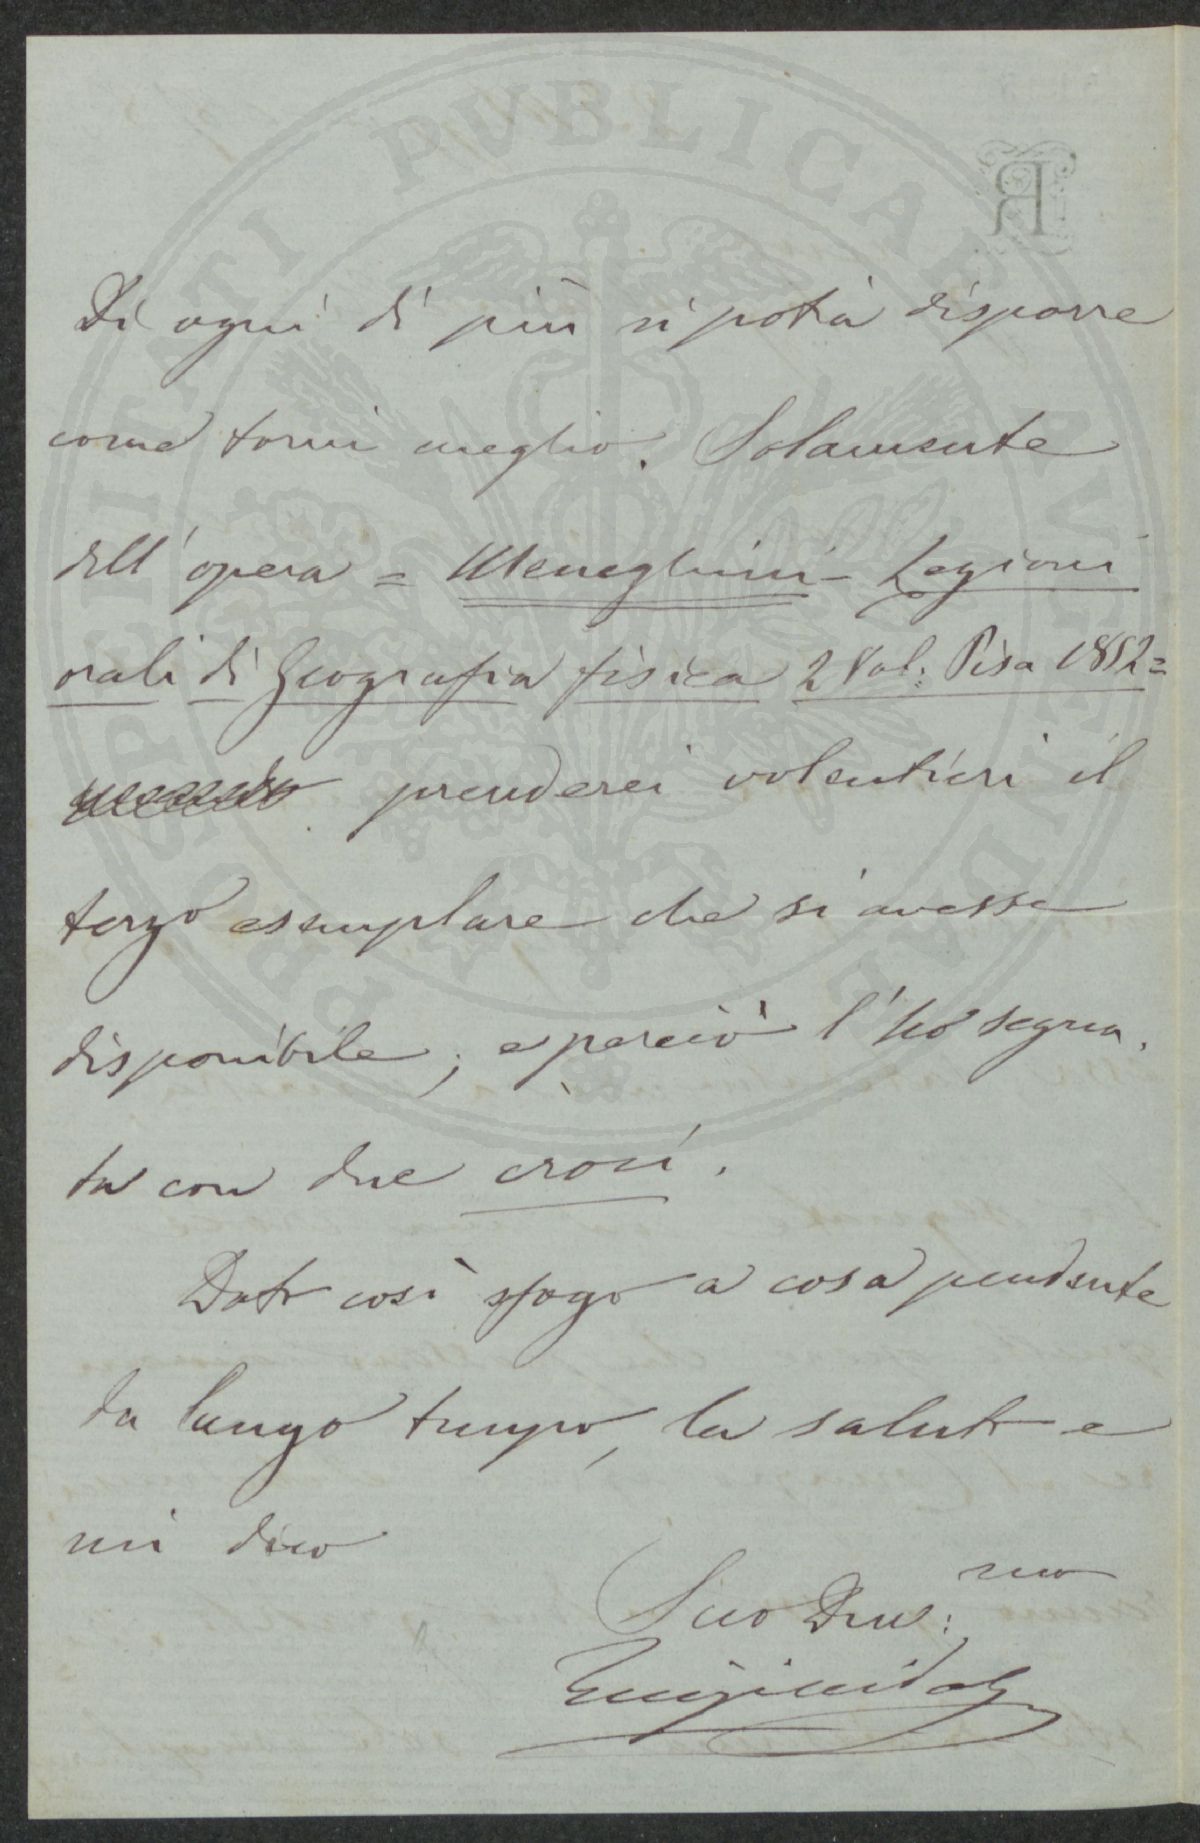 PROSPERITATI PUBLICAE AUGENDAE
R
Di ogni di più si potrà disporre
come torni meglio. Solamente
dell'opera = Meneghini - Lezioni
orali di Geografia fisica 2 Vol: Pisa 1852 =
prenderei volentieri il
terzo esemplare che si avesse
disponibile; e perciò l'ho segna.
ta con due croci.
Dato così sfogo a cosa pendente
da lungo tempo, la saluto e
mi dico
Suo Dev: mo